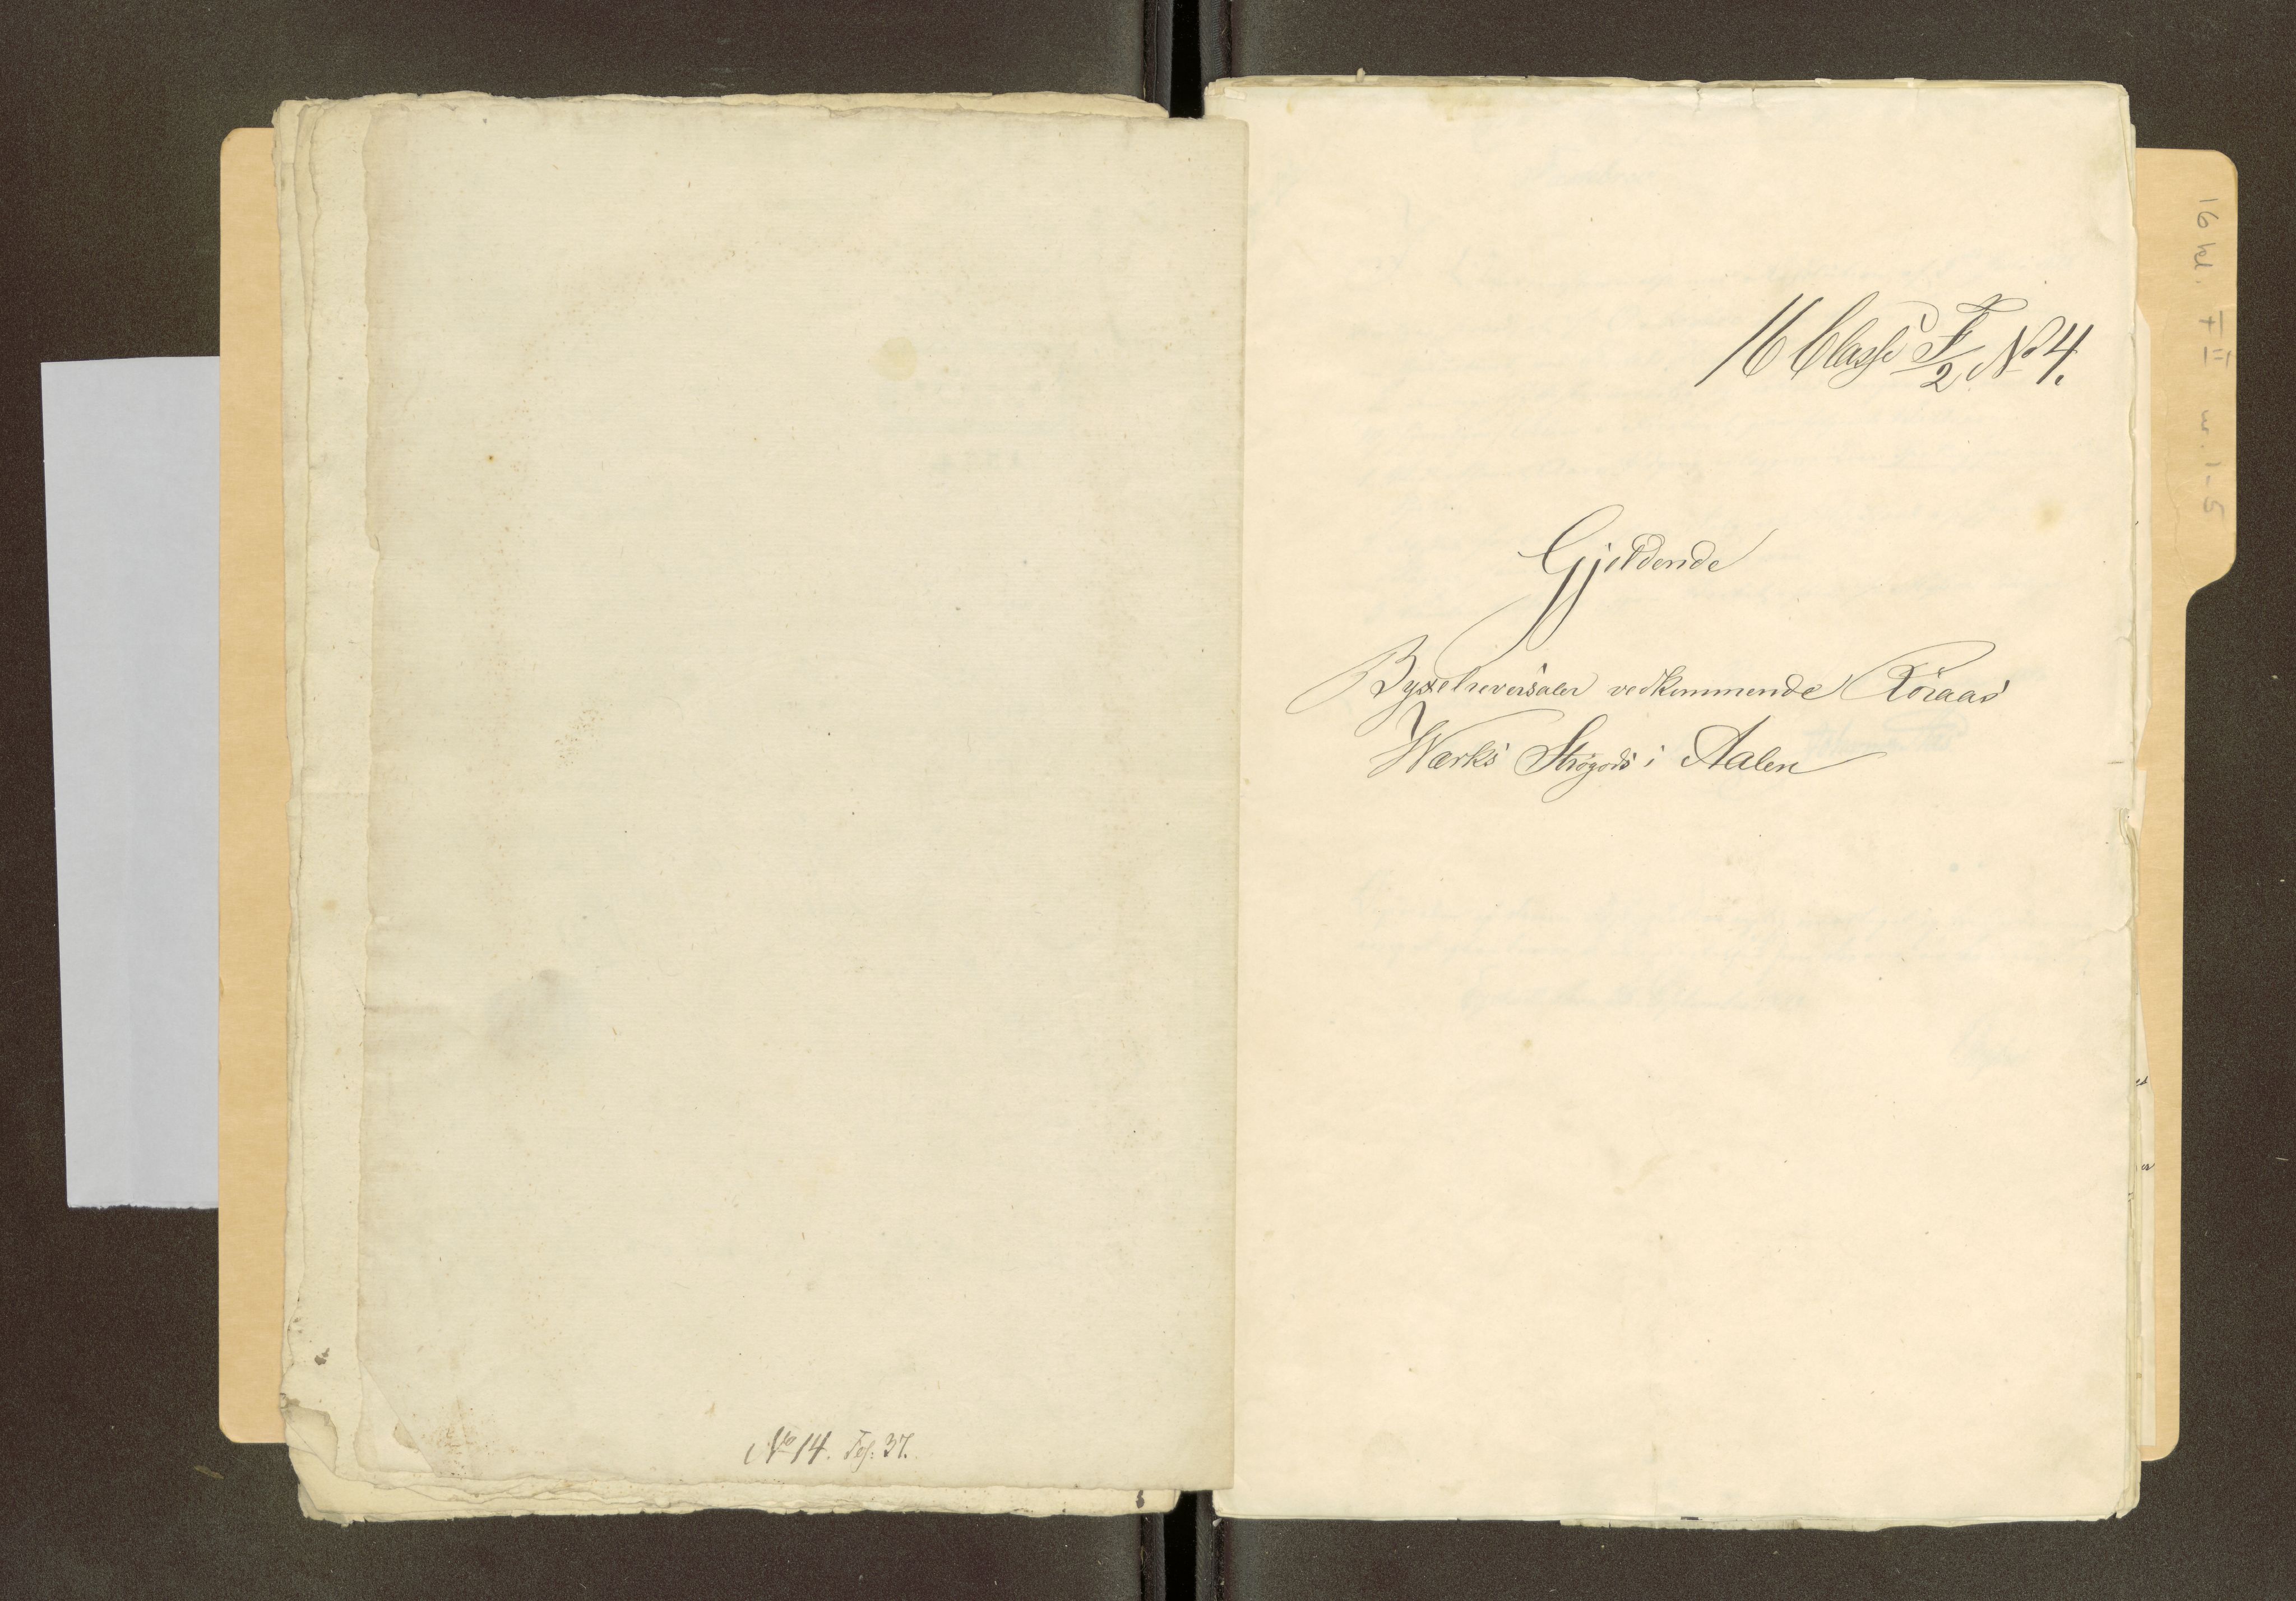 No 14. Fol: 37.
16 Classe F/2 No 4.
Gjeldende
Bygselreversaler vedkommende Röraas
Værks Strögods i Aalen
16 kl. F II nr. 1-5